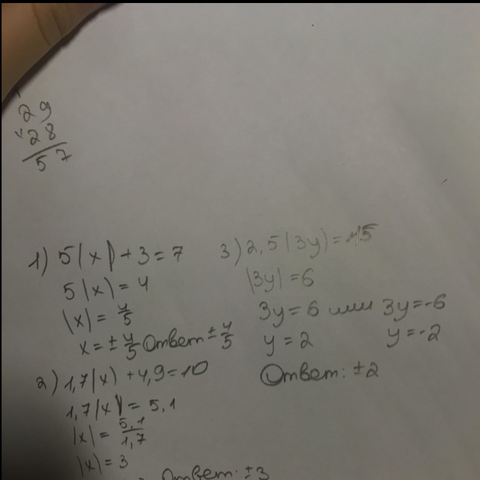 29
28
57
1) 5|x|+3=7
5|x|=4
|x|=4/5
x=±4/5 Ответ ±4/5
2) 1,7|x|+4,9=10
1,7|x|=5,1
|x|=5,1/1,7
|x|=3
Ответ: ±3
3) 2,5|3y|=15
|3y|=6
3y=6 или 3y=-6
y=2 y=-2
Ответ: ±2